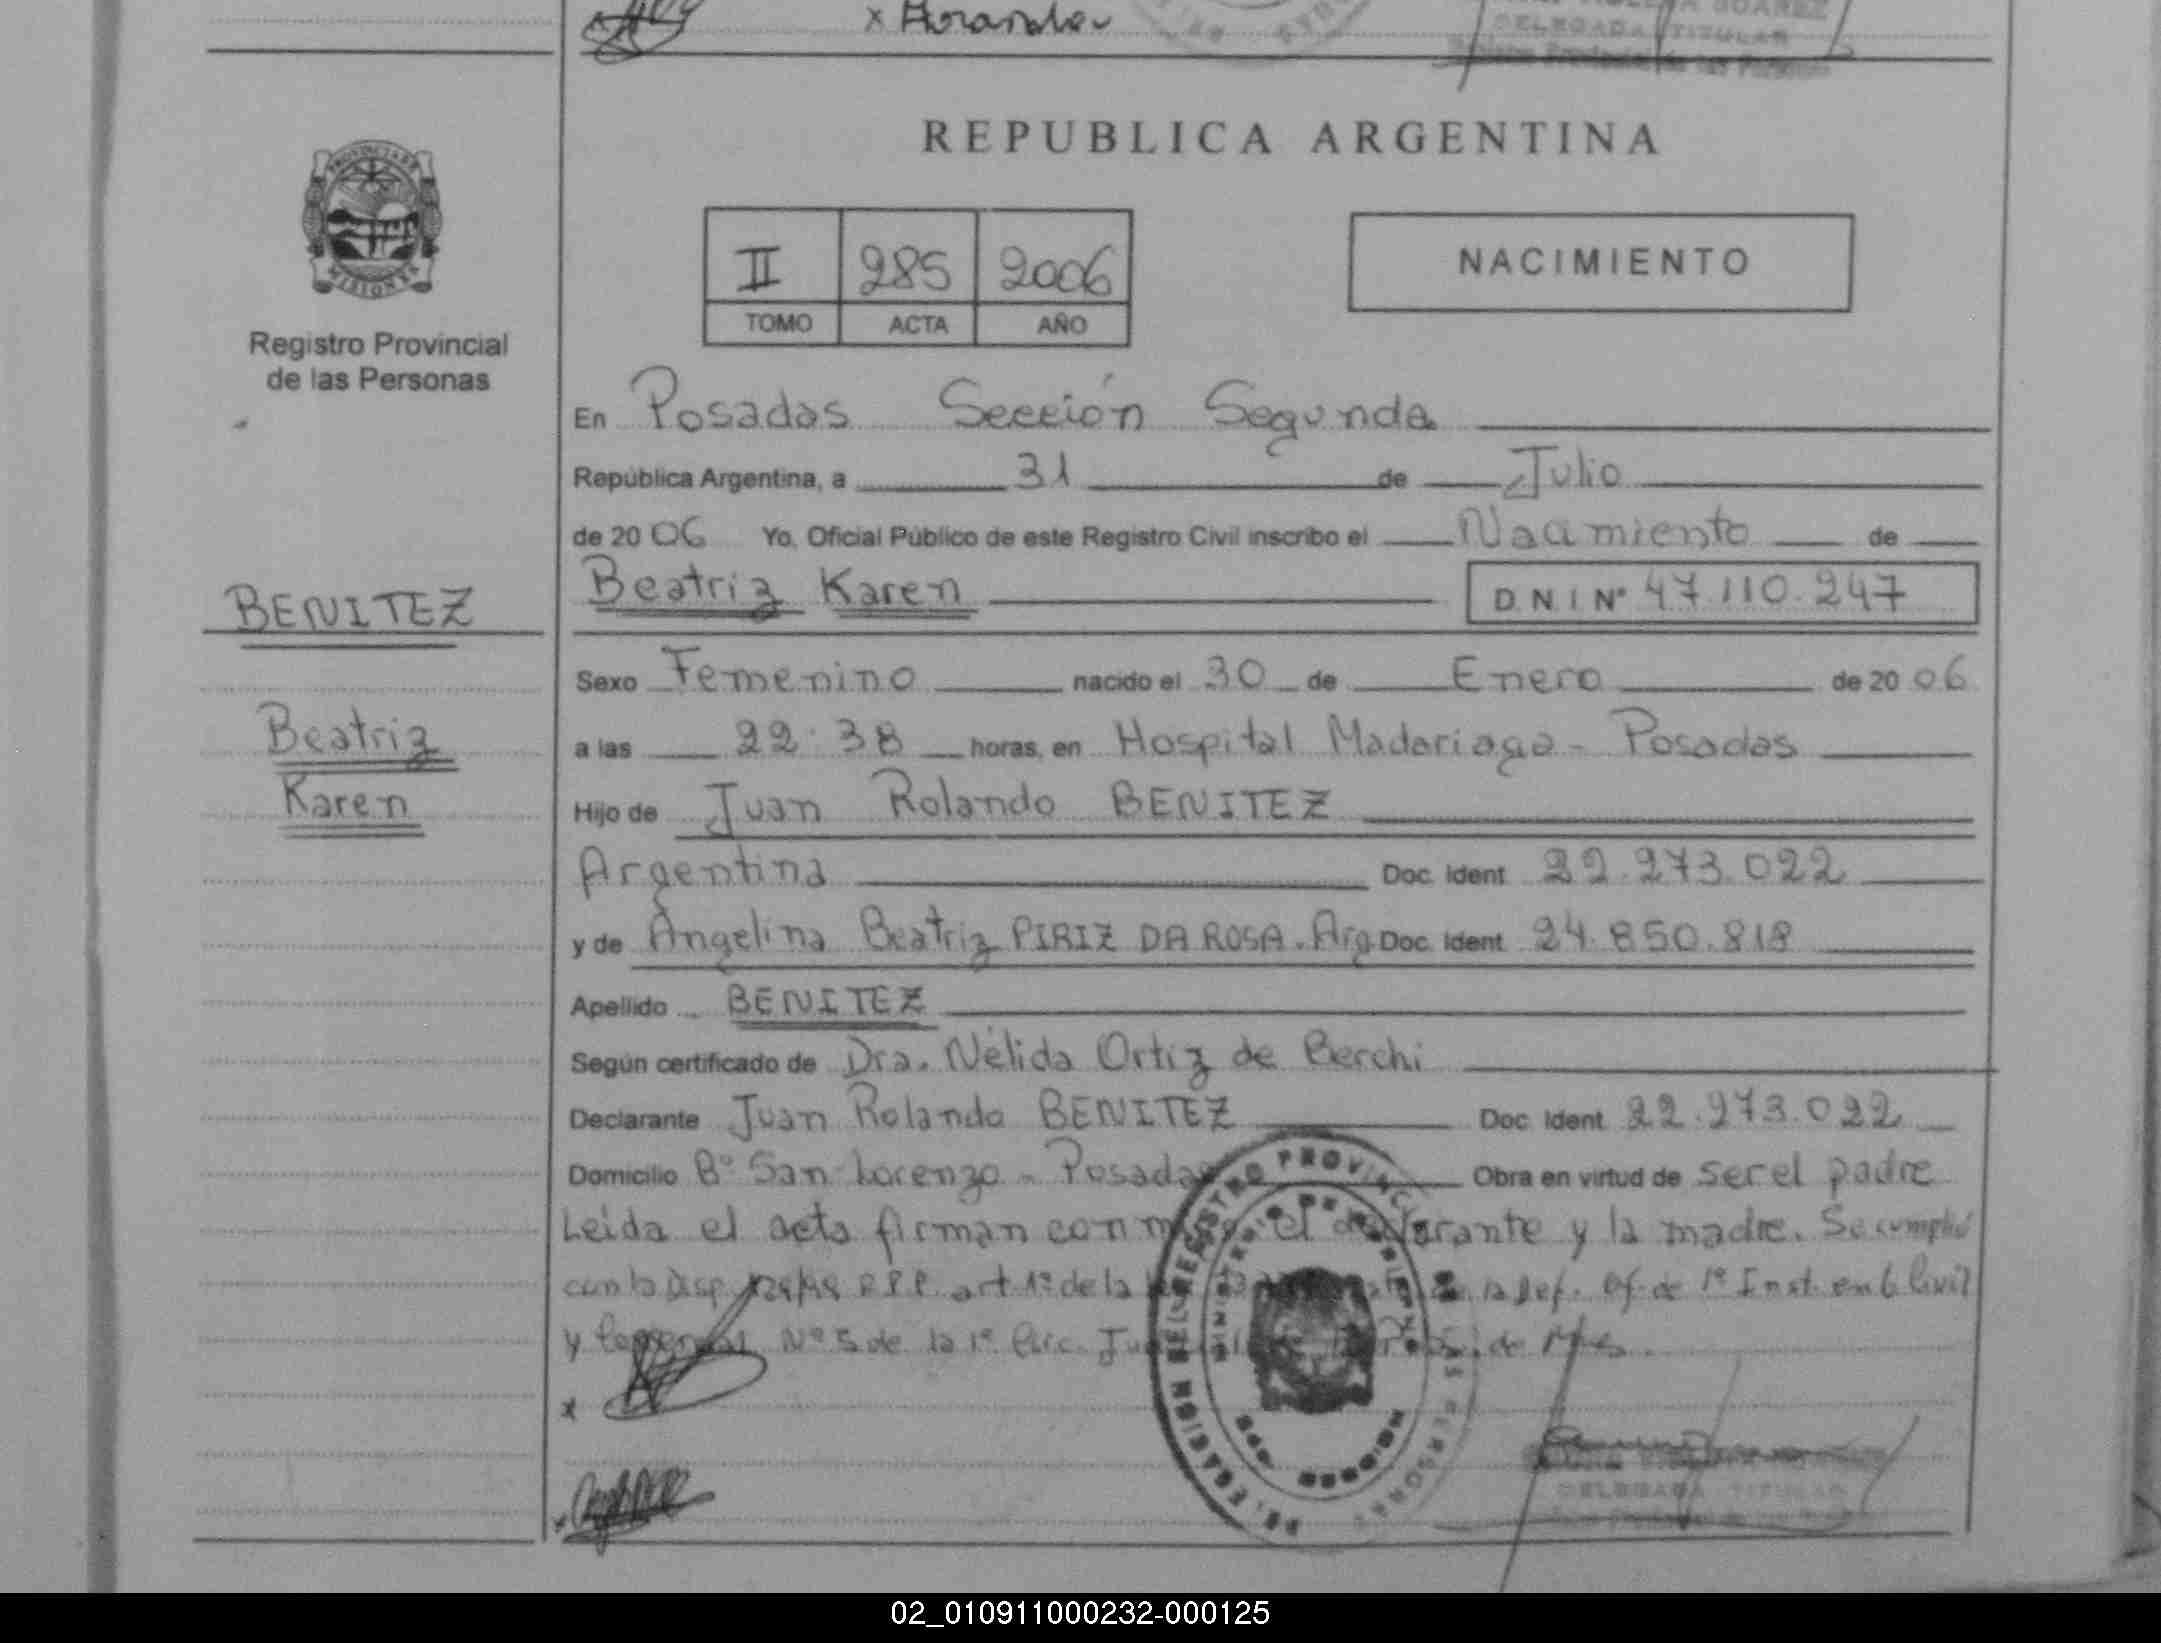 x Aranda
DELEGADA TITULAR
Registro Provincial de las Personas
PROVINCIA DE
MISIONES
Registro Provincial
de las Personas
REPUBLICA ARGENTINA
II 285 2006
TOMO ACTA AÑO
NACIMIENTO
En Posadas Sección Segunda
República Argentina, a 31 de Julio
de 20 06 Yo, Oficial Público de este Registro Civil inscribo el Nacimiento de
BENITEZ
Beatriz Karen D.N.I Nº 47.110.247
Sexo Femenino nacido el 30 de Enero de 20 06
Beatriz
Karen
a las 22:38 horas, en Hospital Madariaga - Posadas
Hijo de Juan Rolando BENITEZ
Argentina Doc. Ident. 22.273.022
y de Angelina Beatriz PIRIZ DA ROSA. Arg Doc. Ident. 24.850.818
Apellido BENITEZ
Según certificado de Dra. Nélida Ortiz de Berchi
Declarante Juan Rolando BENITEZ Doc. Ident. 22.273.022
Domicilio Bº San Lorenzo - Posadas Obra en virtud de ser el padre
Leida el acta firman con el declarante y la madre. Se cumplió
con la Disp. art 1º de la de la Def. Of. de 1º Inst. en lo Civil
y Nº 5 de la 1º Circ. de Mnes.
x
DELEGADA TITULAR
02_010911000232-000125